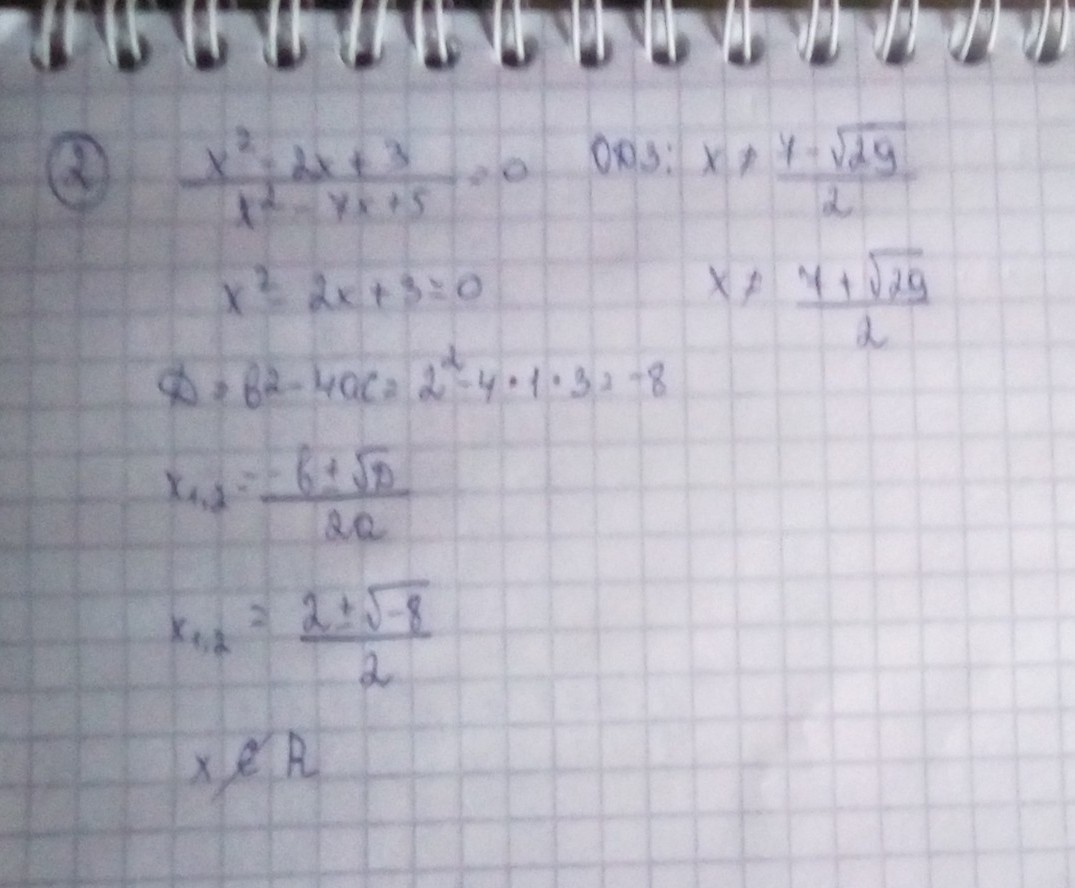 ② (x² - 2x + 3)/(x² - 7x + 5) = 0 ОДЗ: x ≠ (7 - √29)/2
x² - 2x + 3 = 0 x ≠ (7 + √29)/2
D = b2 - 4ac = 2² - 4 · 1 · 3 = -8
x₁,₂ = (-b ± √D)/2a
x₁,₂ = (2 ± √-8)/2
x ∉ R